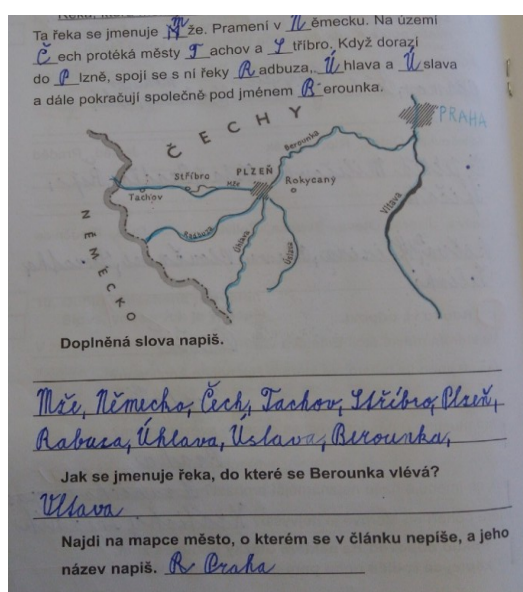 Ta řeka se jmenuje Mže. Pramení v Německu. Na území
Čech protéká městy Tachov a Stříbro. Když dorazí
do Plzně, spojí se s ní řeky Radbuza, Úhlava a Úslava
a dále pokračují společně pod jménem Berounka.
ČECHY
PRAHA
Berounka
PLZEŇ
Stříbro
Mže
Rokycany
Tachov
Vltava
NĚMECKO
Radbuza
Úhlava
Úslava
Doplněná slova napiš.
Mže, Německo, Čech, Tachov, Stříbro, Plzeň,
Rabuza, Úhlava, Úslava, Berounka,
Jak se jmenuje řeka, do které se Berounka vlévá?
Vltava
Najdi na mapce město, o kterém se v článku nepíše, a jeho
název napiš. R Praha